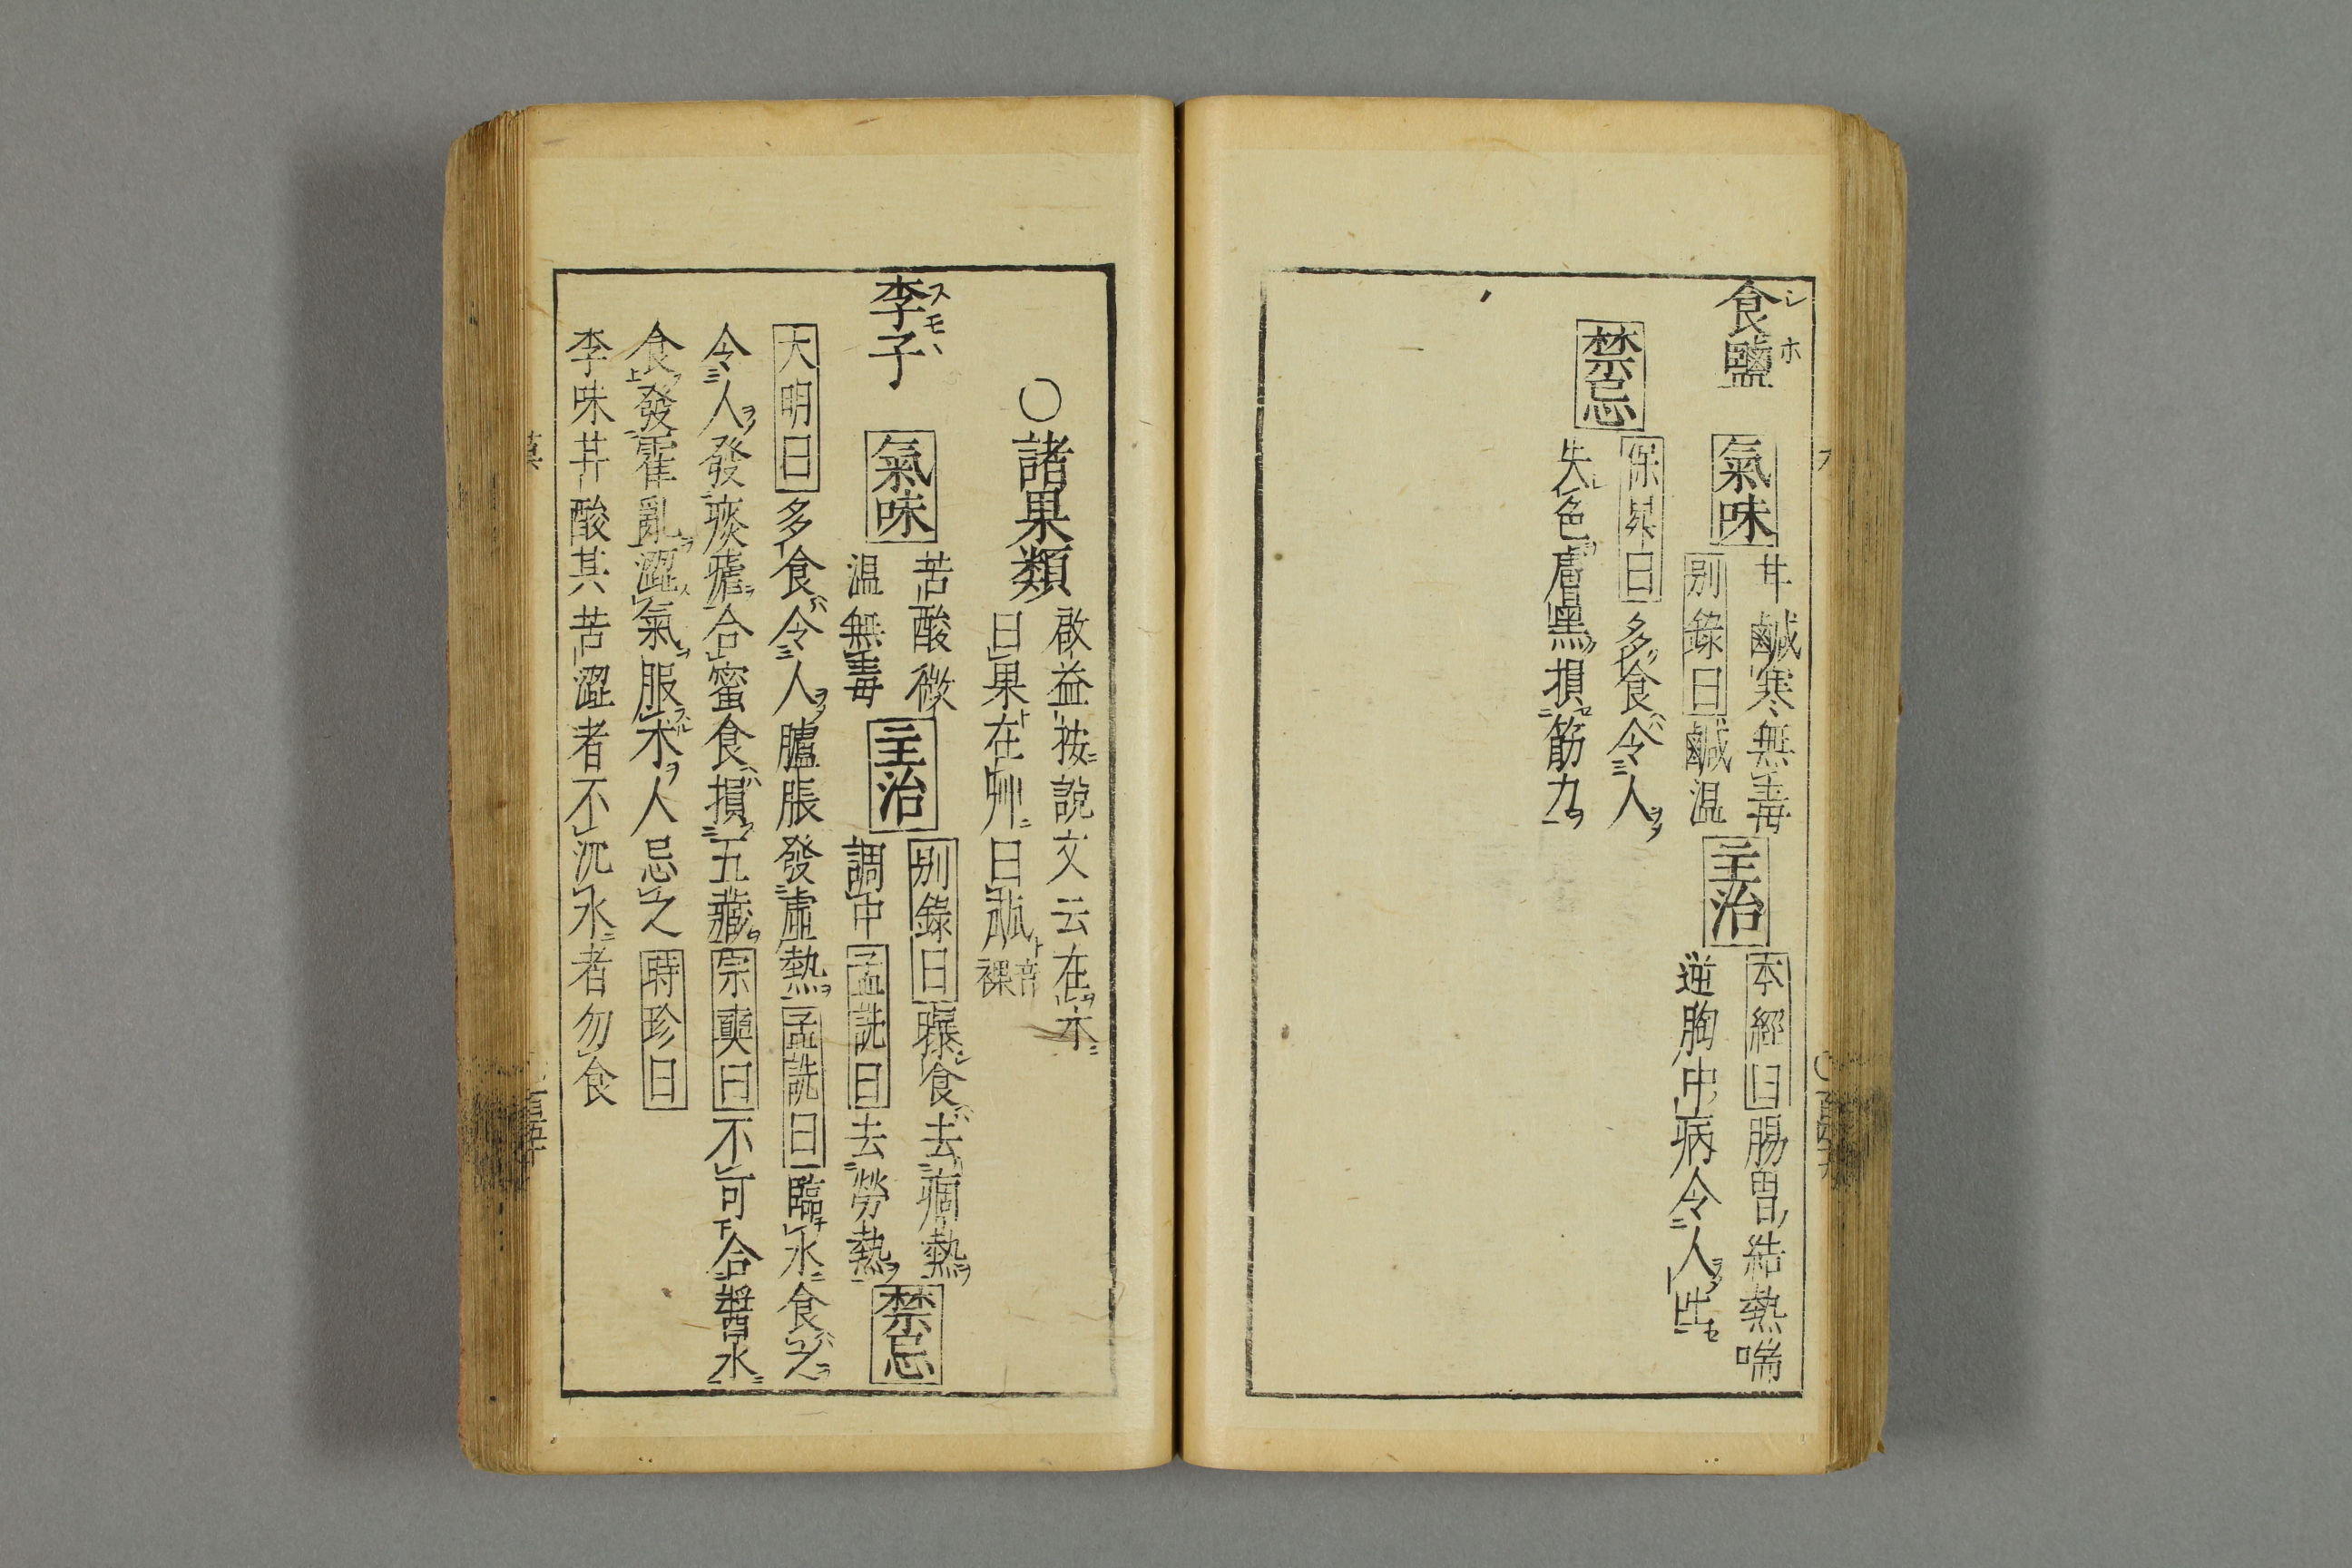 食鹽 シホ
氣味
甘鹹寒無毒
別錄曰鹹温
主治
本經曰腸胃結熱喘
逆胸中病令人吐
禁忌
保昇曰多食令人
失色膚黑損筋力
○諸果類
啟益按說文云在木
曰果在艸曰蓏音裸
李子 スモヽ
氣味
苦酸微
温無毒
主治
別錄曰曝食去痼熱
調中孟詵曰去勞熱
禁忌
大明曰多食令人臚脹發虛熱孟詵曰臨水食之
令人發痰瘧合蜜食損五藏宗奭曰不可合醬水
食發霍亂澀氣服朮人忌之時珍曰
李味甘酸其苦澀者不沉水者勿食